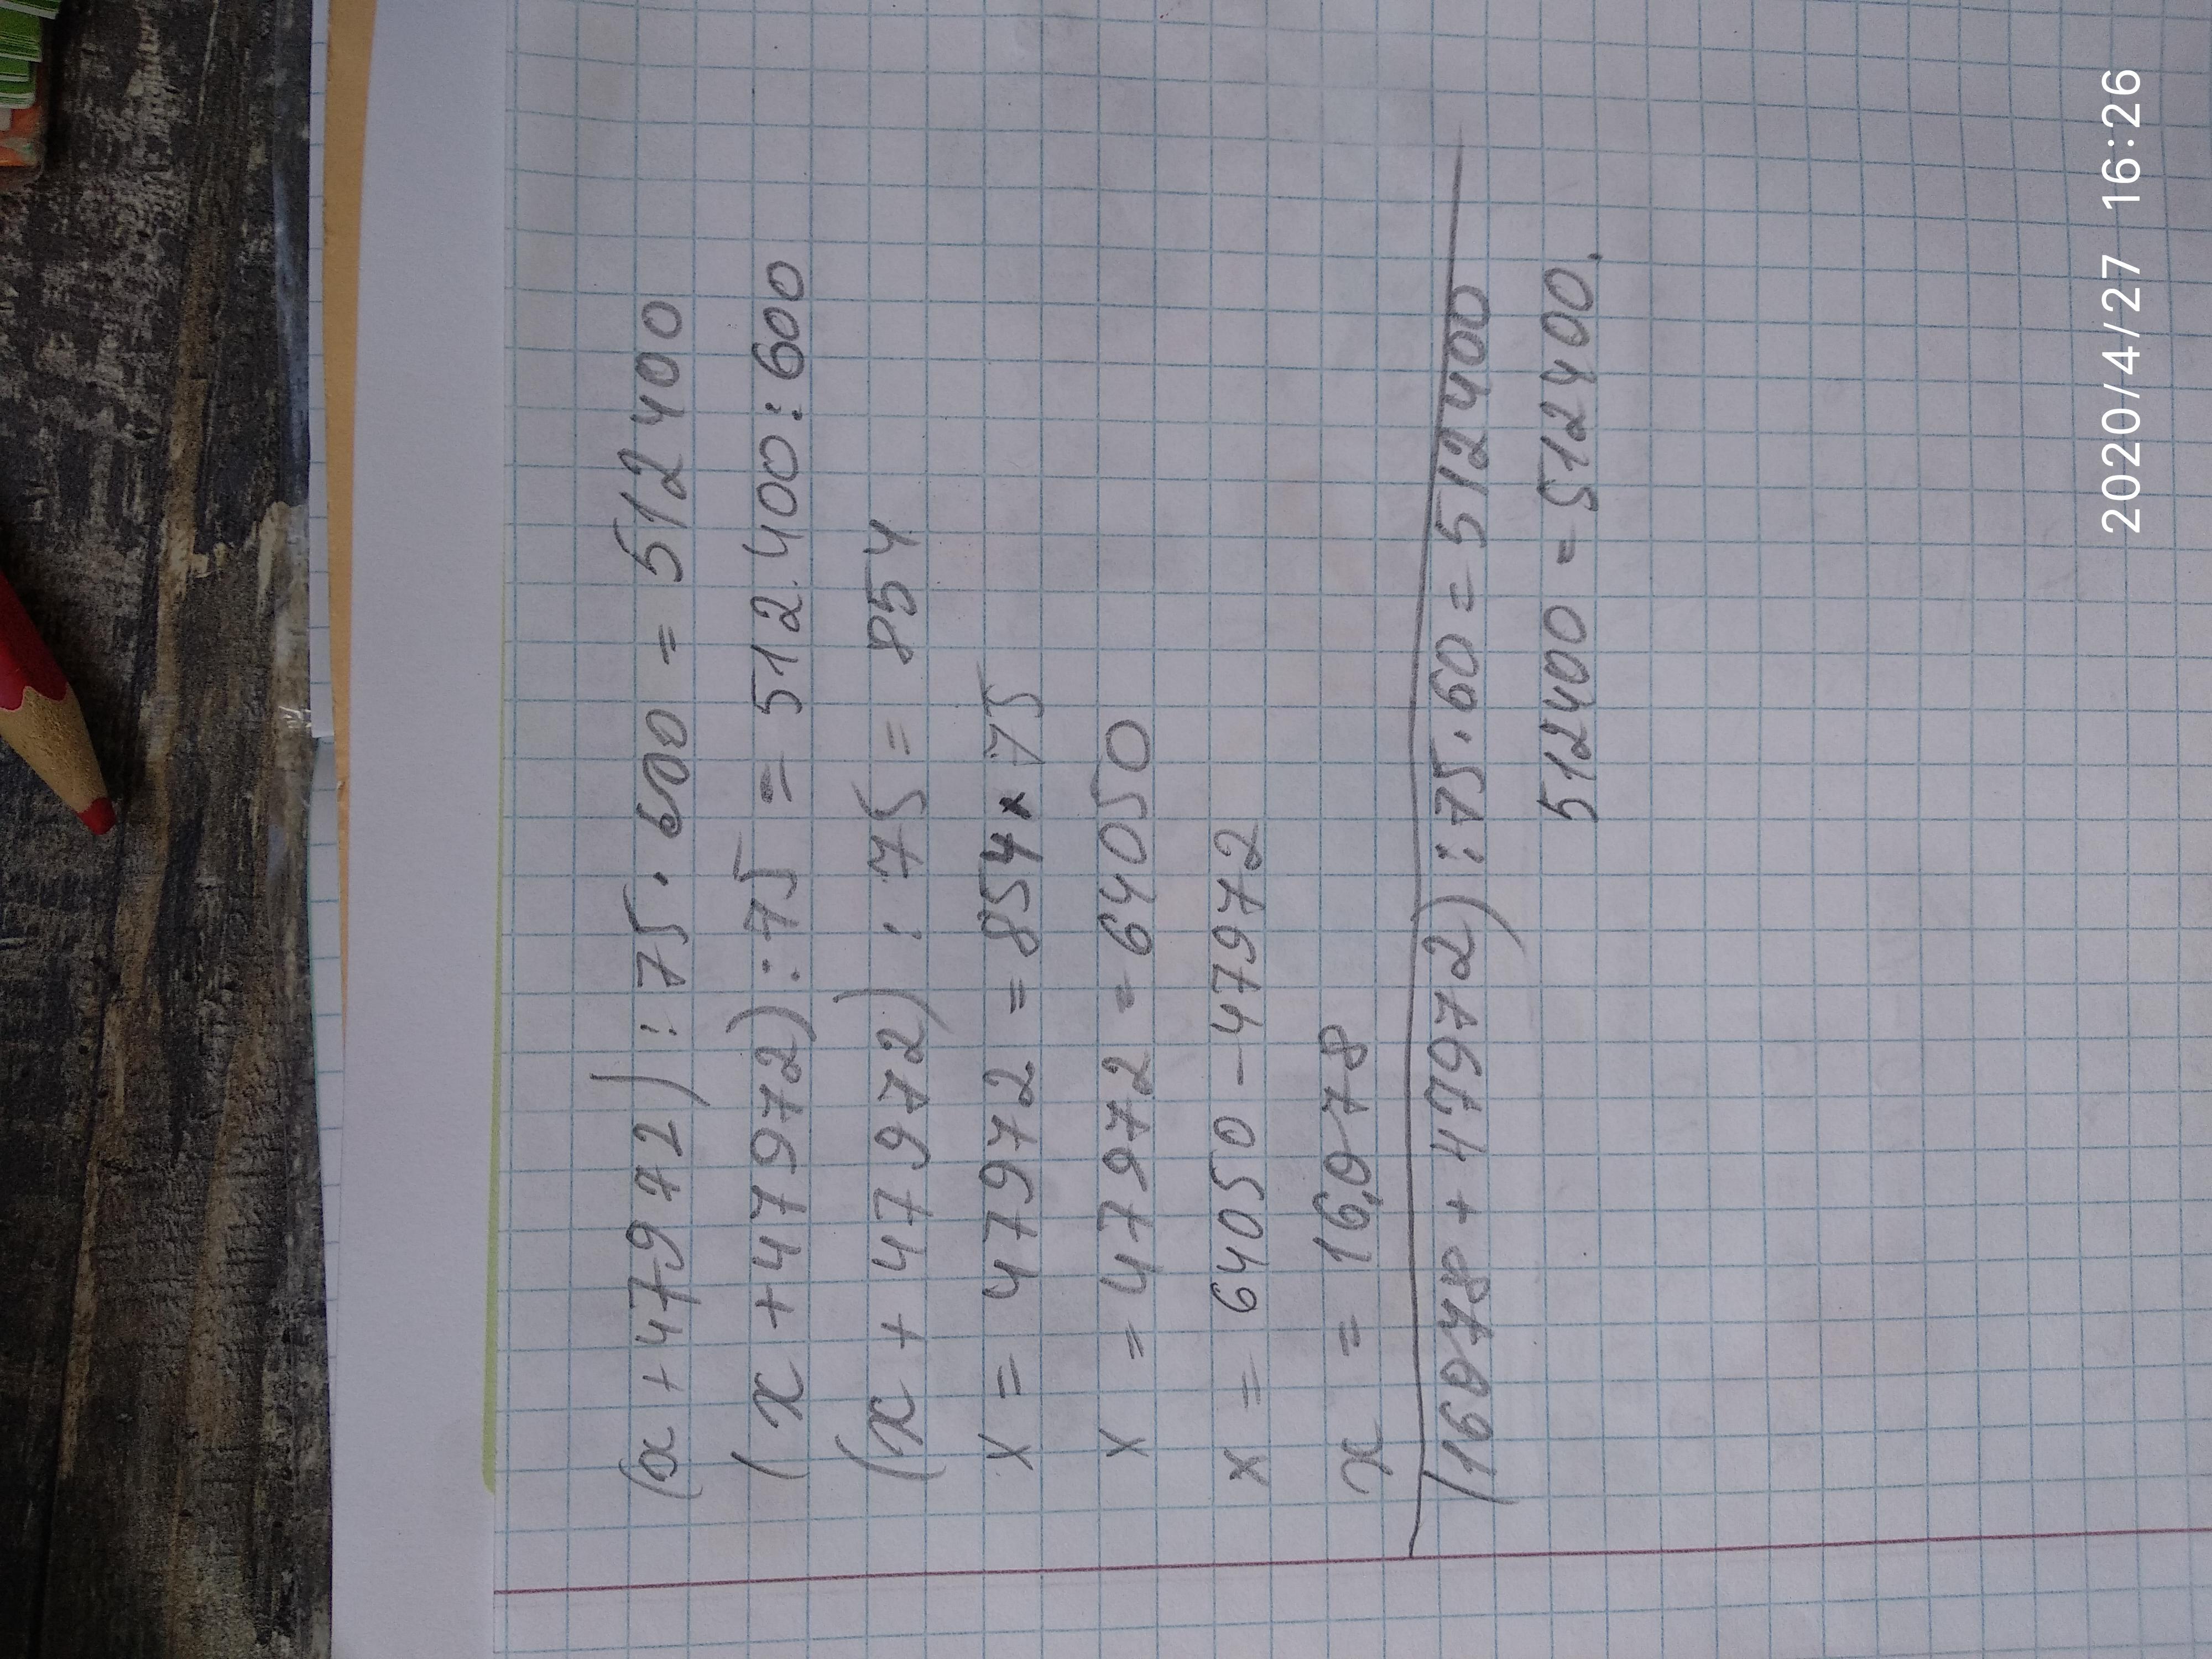 (x + 47972) : 75 · 600 = 512400
(x + 47972) : 75 = 512.400 : 600
(x + 47972) : 75 = 854
x = 47972 = 854 × 75
x = 47972 = 64050
x = 64050 - 47972
x = 16078
(16078 + 47972) : 75 · 60 = 512400
512400 = 512400.
2020/4/27 16:26